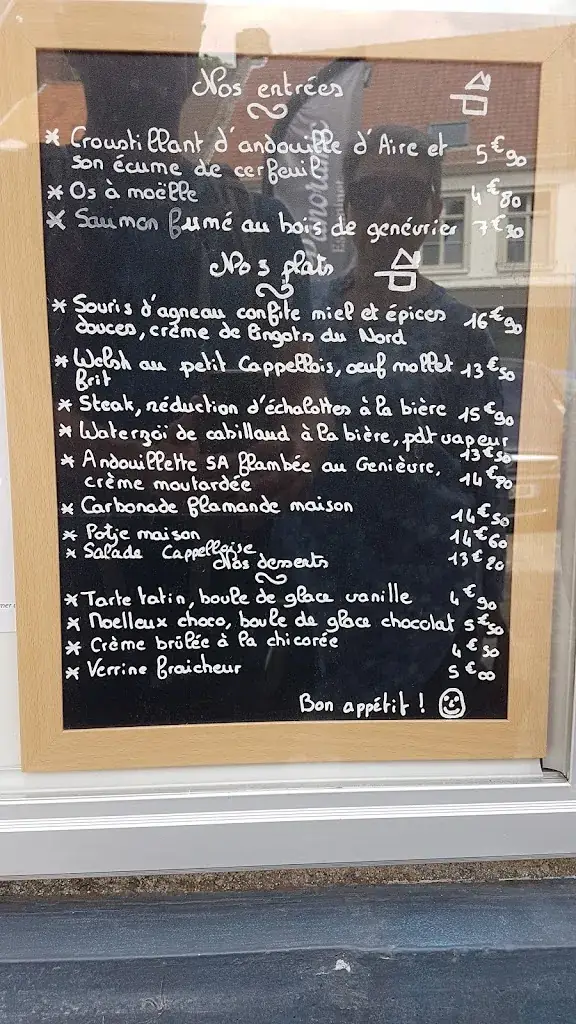 Nos entrées
* Croustillant d'andouille d'Aire et 5€90
son écume de cerfeuil
* Os à moëlle 4€80
* Saumon fumé au bois de genévrier 7€30
Nos plats
* Souris d'agneau confite miel et épices 16€90
douces, crème de lingots du Nord
* Welsh au petit Cappellois, oeuf mollet 13€50
frit
* Steak, réduction d'échalottes à la bière 15€90
* Waterzoï de cabillaud à la bière, pdt vapeur
13€50
* Andouillette 5A flambée au Genièvre, 14€80
crème moutardée
* Carbonade flamande maison 14€50
* Potje maison 14€60
* Salade Cappelloise 13€20
Nos desserts
* Tarte tatin, boule de glace vanille 4€90
* Moelleux choco, boule de glace chocolat 5€50
* Crème brûlée à la chicorée 4€50
* Verrine fraicheur 5€00
Bon appétit !